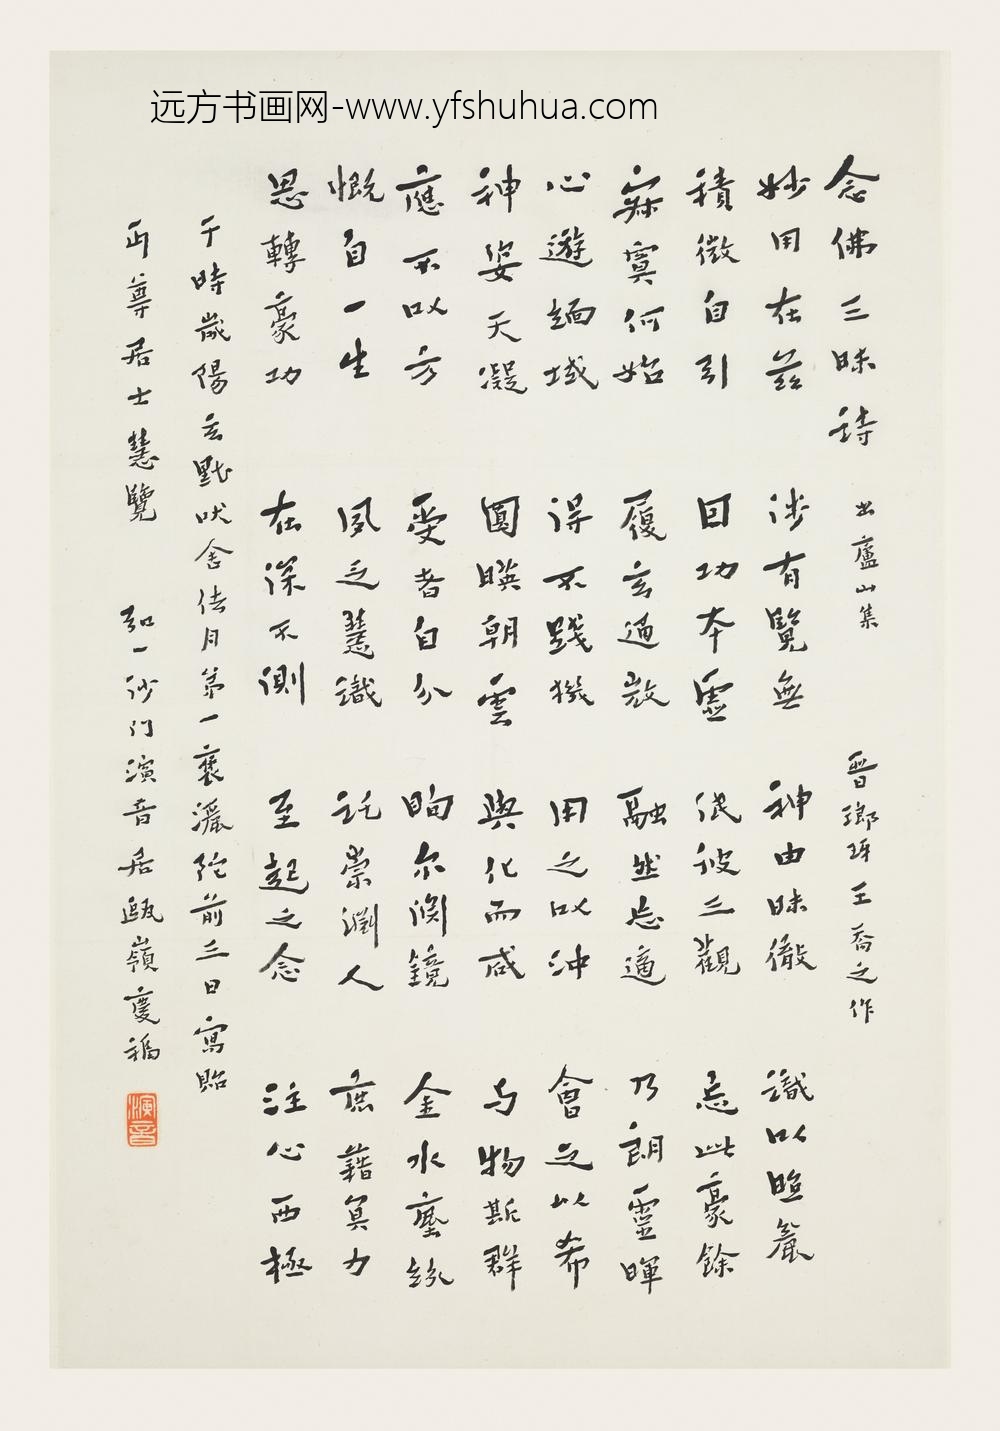 远方书画网-www.yfshuhua.com
念佛三昧詩 出廬山集 晉瑯琊王喬之作
妙用在茲 涉有覽無 神由昧徹 識以照麤
積微自引 因功本虛 泯彼三觀 忘此豪餘
寂寞何始 履玄通微 融然忘適 乃朗靈暉
心遊緬域 得不踐機 用之以沖 會之以希
神姿天凝 圓暎朝雲 與化而感 与物斯群
應不以方 受者自分 眴尔淵鏡 金水塵紛
慨自一生 夙乏慧識 託崇淵人 庶藉冥力
思轉豪功 在深不測 至起之念 注心西極
于時歲陽玄黓吠舍佉月第一褒灑陀前三日寫貽
丏尊居士慧覽 弘一沙門演音居甌嶺慶福
演音